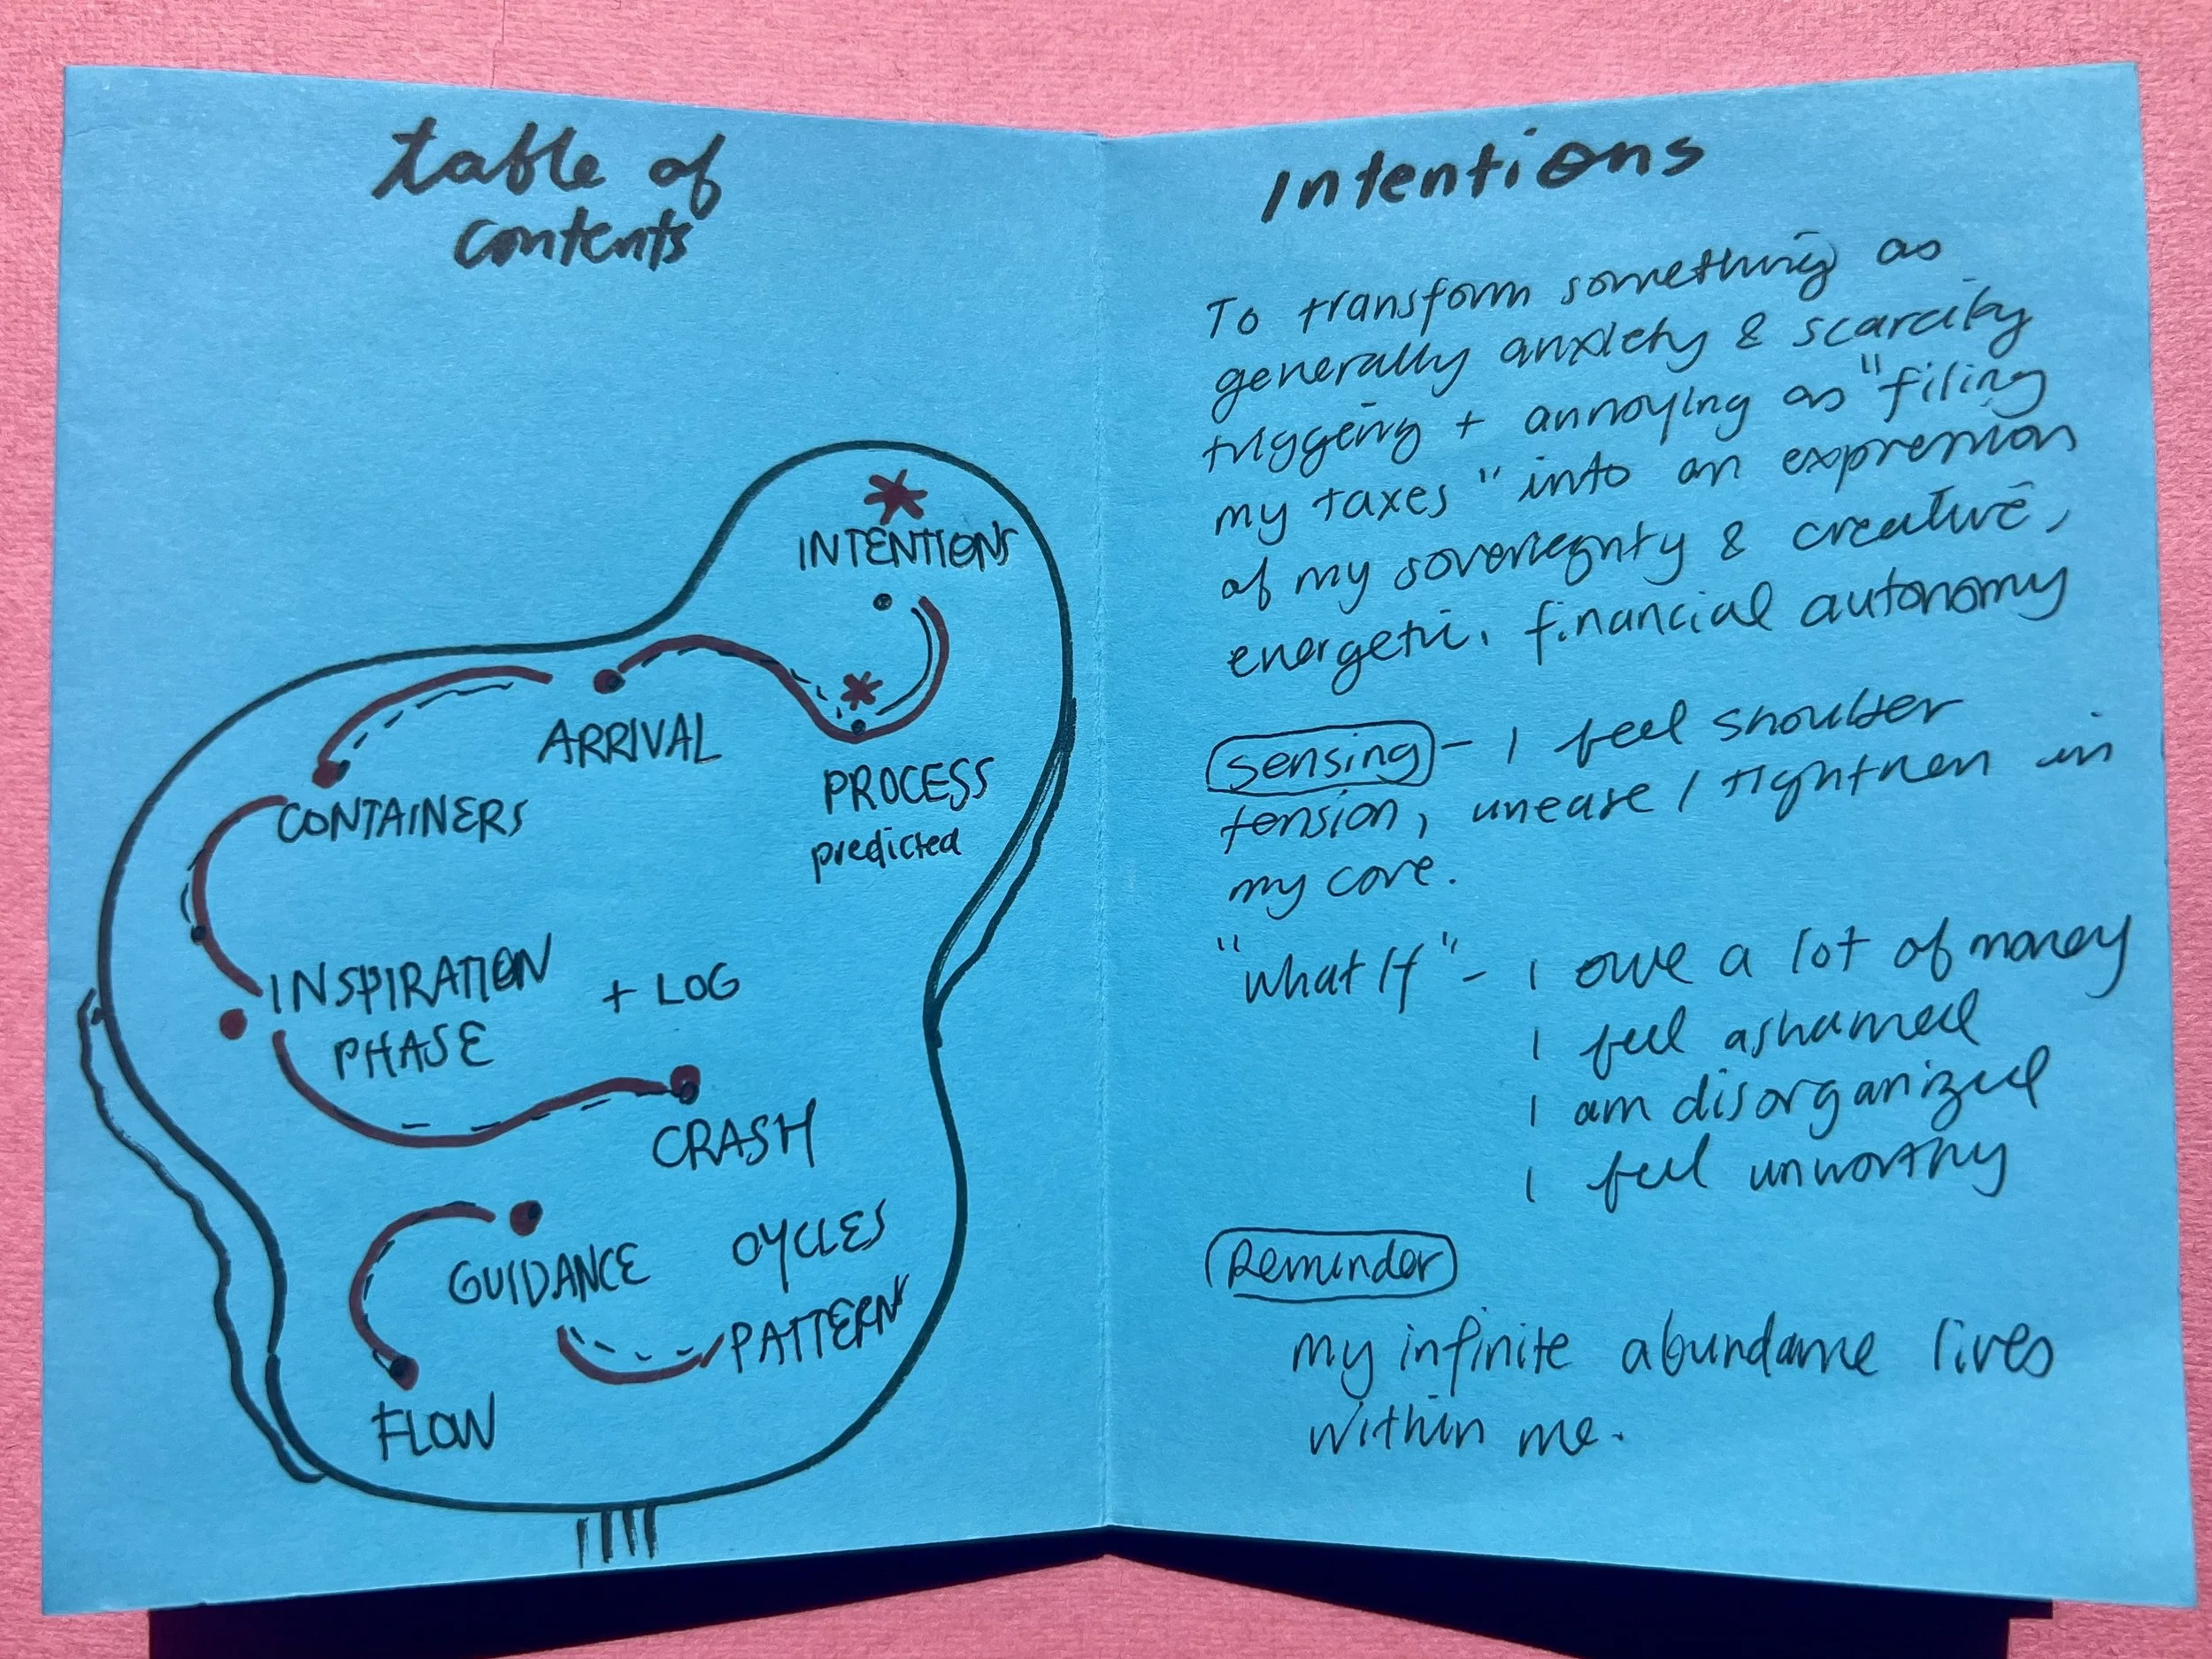 table of
contents
INTENTIONS
PROCESS
predicted
ARRIVAL
CONTAINERS
INSPIRATION + LOG
PHASE
CRASH
GUIDANCE
CYCLES
PATTERNS
FLOW
Intentions
To transform something as
generally anxiety & scarcity
triggering + annoying as "filing
my taxes" into an expression
of my soveriegnty & creative,
energetic, financial autonomy
Sensing - I feel shoulder
tension, unease / tightness in
my core.
"What If" - I owe a lot of money
I feel ashamed
I am disorganized
I feel unworthy
Reminder
my infinite abundance lives
within me.